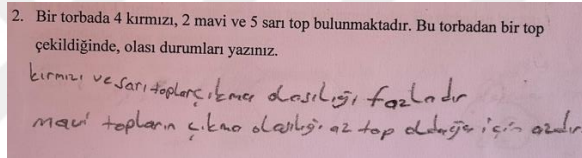 2. Bir torbada 4 kırmızı, 2 mavi ve 5 sarı top bulunmaktadır. Bu torbadan bir top
çekildiğinde, olası durumları yazınız.
kırmızı ve sarı toplar çıkma olasılığı fazladır
mavi topların çıkma olasılığı az top olduğu için azdır